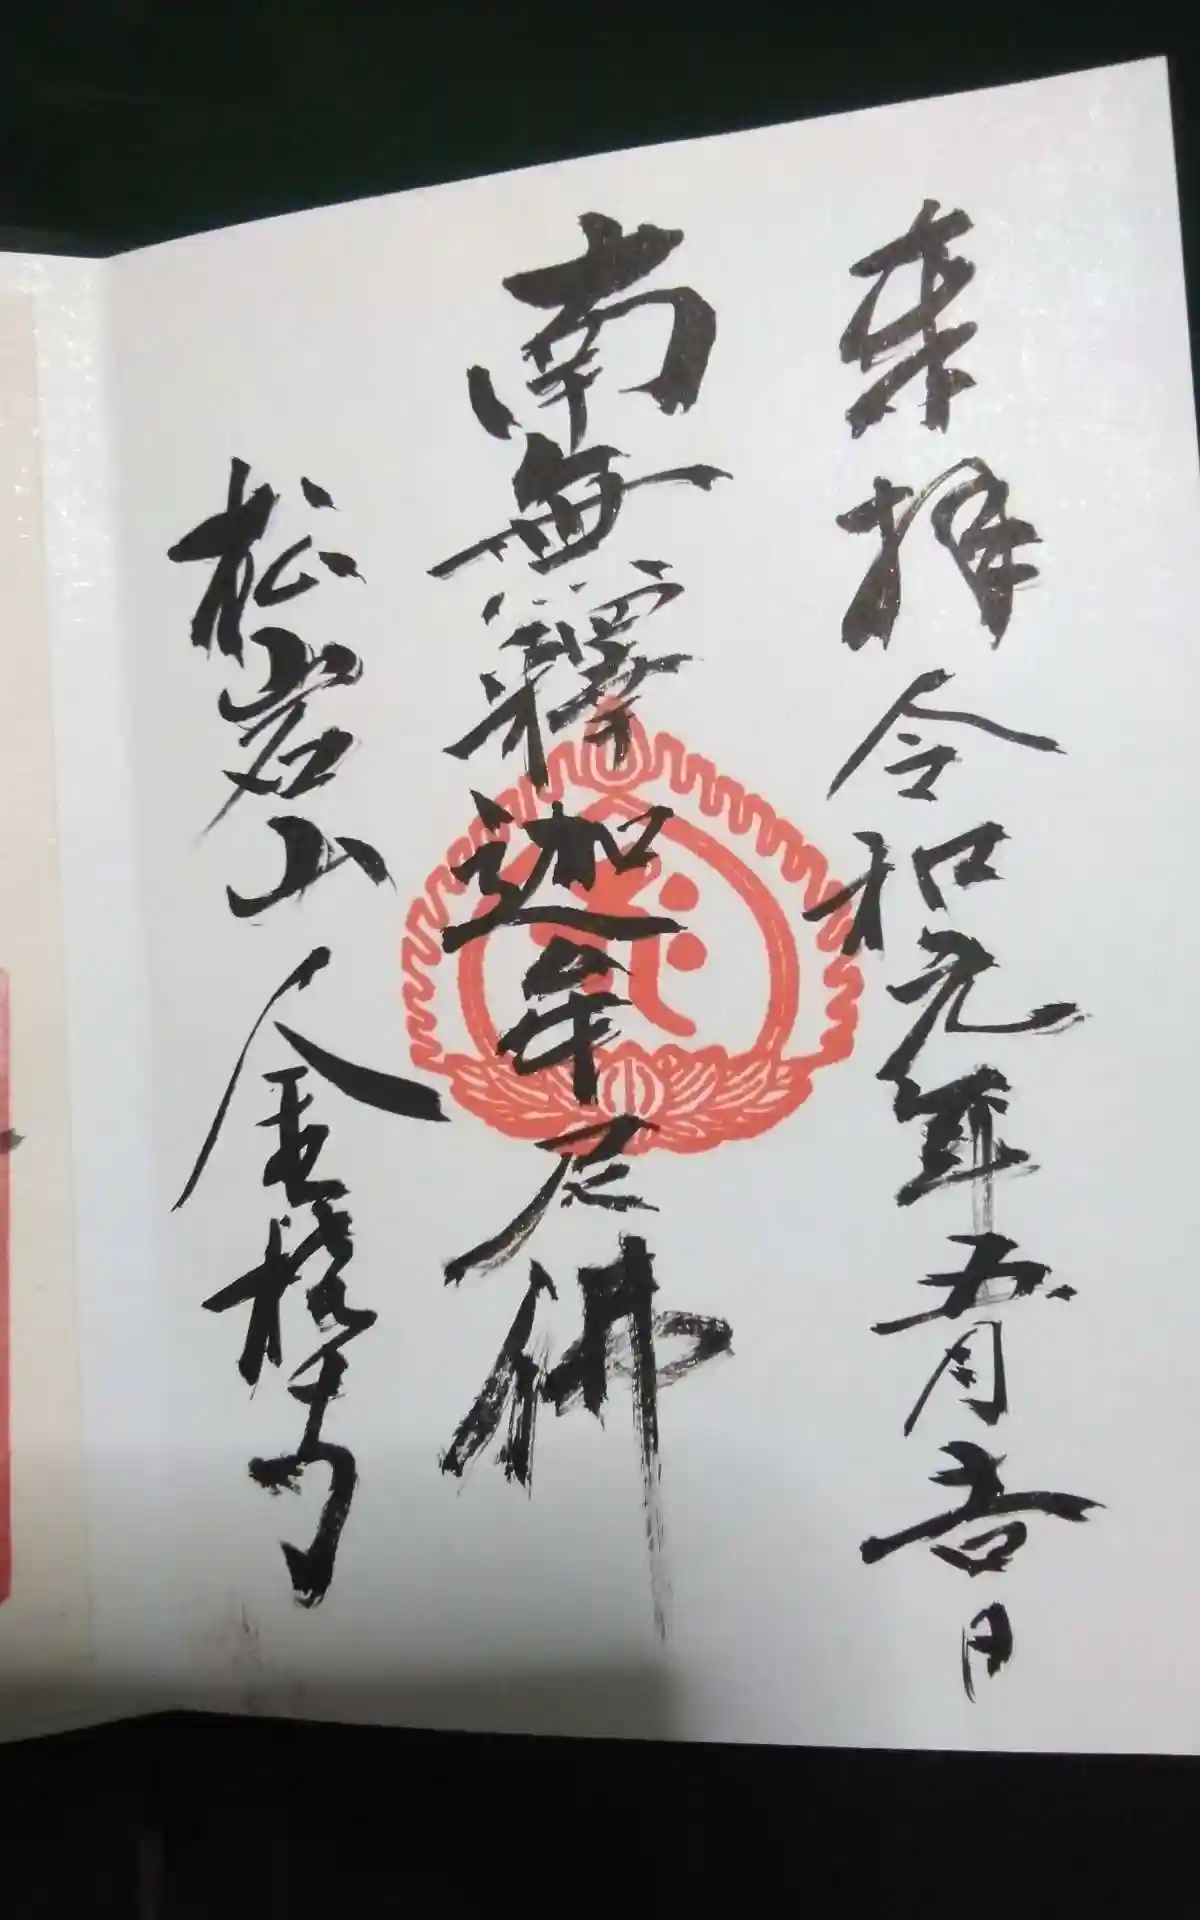 来拝 令和元年五月吉日
南無釋迦牟尼佛
松岩山 金槗寺